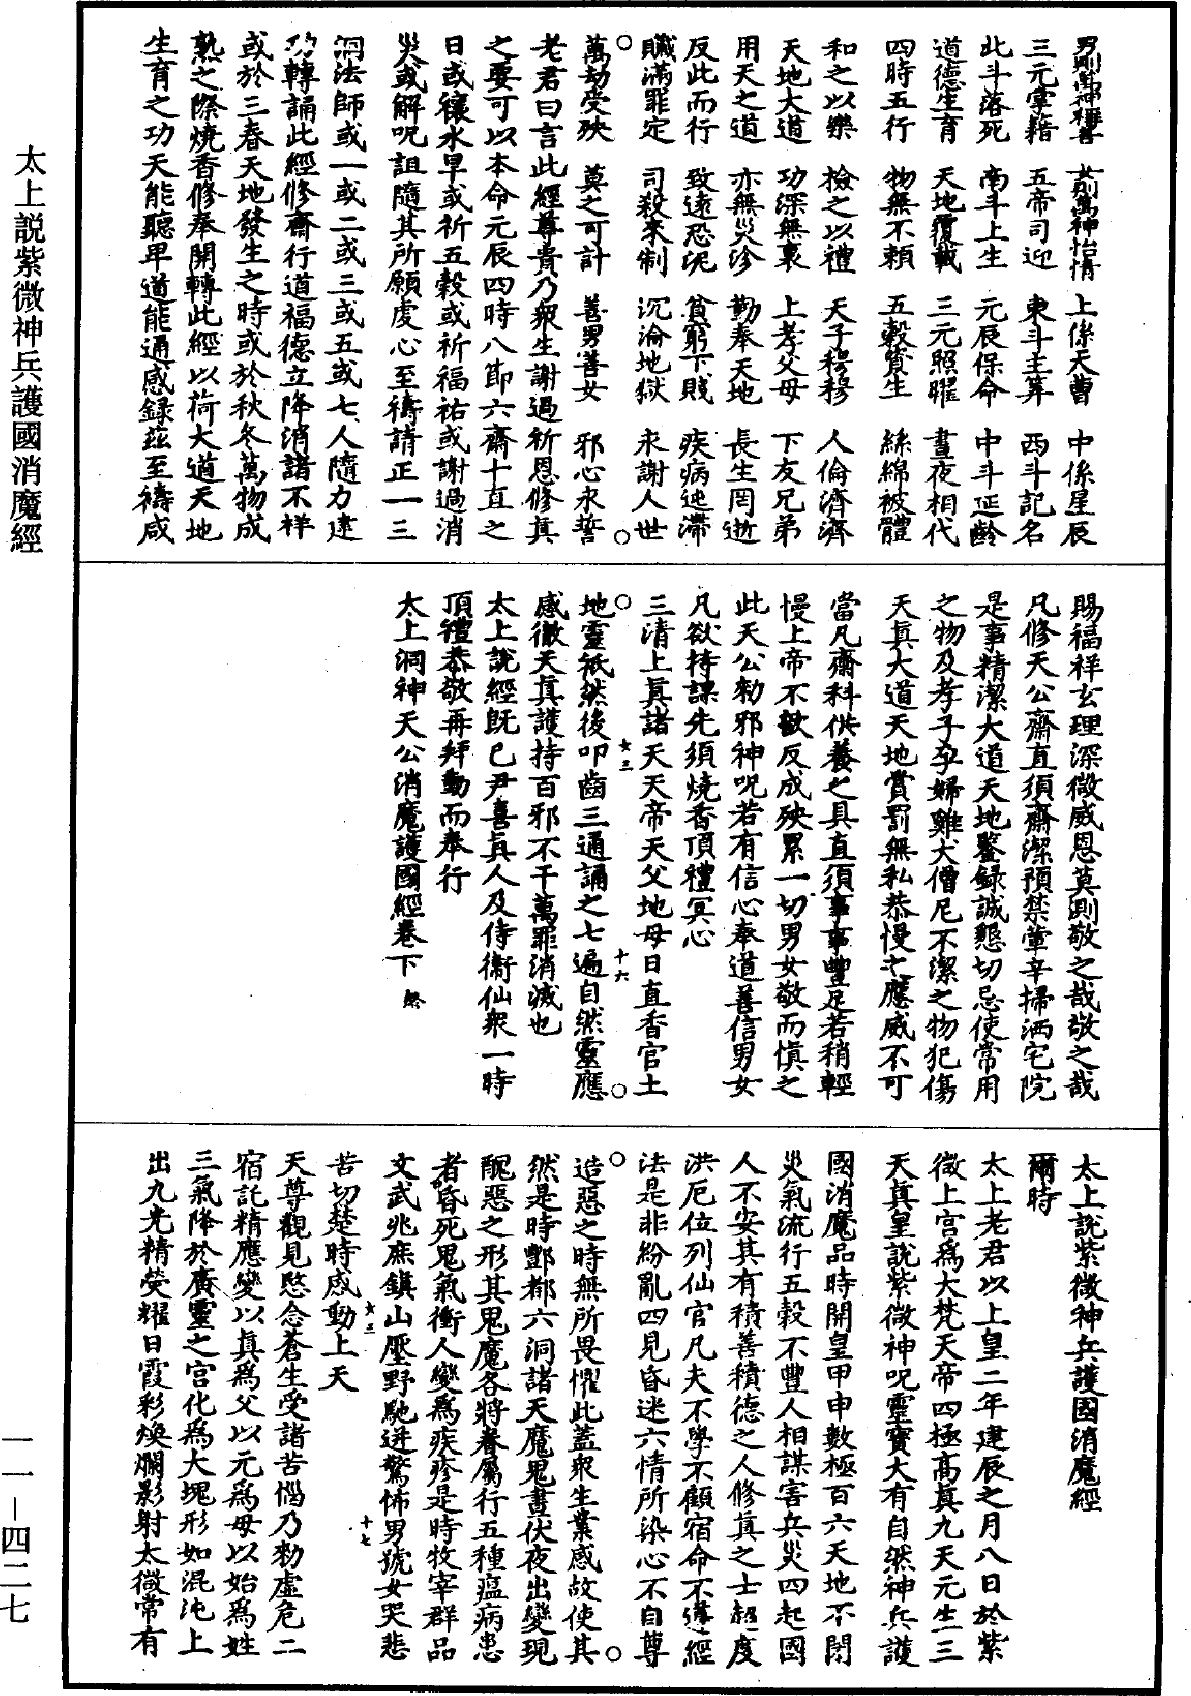 男則萬神稱善　女則萬神怡情　上係天曹　中係星辰
三元宰籍　五帝司迎　東斗主筭　西斗記名
北斗落死　南斗上生　元辰保命　中斗延齡
道德生育　天地覆載　三元照曜　晝夜相代
四時五行　物無不賴　五穀資生　絲綿被體
和之以樂　檢之以禮　天子穆穆　人倫濟濟
天地大道　功深無裏　上孝父母　下友兄弟
用天之道　亦無災沴　勤奉天地　長生罔逝
反此而行　致遠恐泥　貧窮下賤　疾病迍滯
贓滿罪定　司殺來制　沉淪地獄　永謝人世
萬劫受殃　莫之可計　善男善女　邪心永誓
老君曰言此經尊貴乃衆生謝過祈恩修真
之要可以本命元辰四時八節六齋十直之
日或禳水旱或祈五穀或祈福祐或謝過消
災或解呪詛隨其所願虔心至禱請正一三
洞法師或一或二或三或五或七人隨力建
功轉誦此經修齋行道福德立降消諸不祥
或於三春天地發生之時或於秋冬萬物成
熟之際燒香修奉開轉此經以荷大道天地
生育之功天能聽卑道能通感録茲至禱咸
賜福祥玄理深微威恩莫測敬之哉敬之哉
凡修天公齋直須齋潔預禁葷辛掃洒宅院
是事精潔大道天地鑒録誠懇切忌使常用
之物及孝子孕婦雞犬僧尼不潔之物犯傷
天真大道天地賞罰無私恭慢之應威不可
當凡齋科供養之具直須事事豐足若稍輕
慢上帝不歆反成殃累一切男女敬而慎之
此天公勑邪神呪若有信心奉道善信男女
凡欲持誦先須燒香頂禮冥心
三清上真諸天天帝天父地母日直香官土
地靈祇然後叩齒三通誦之七遍自然靈應
感徹天真護持百邪不干萬罪消滅也
太上說經旣已尹喜真人及侍衞仙衆一時
頂禮恭敬再拜勤而奉行
太上洞神天公消魔護國經卷下　終
女三　十六
太上說紫微神兵護國消魔經
爾時
太上老君以上皇二年建辰之月八日於紫
微上宮爲大梵天帝四極高真九天元生三
天真皇說紫微神呪靈寶大有自然神兵護
國消魔品時開皇甲申數極百六天地不閉
災氣流行五穀不豐人相謀害兵災四起國
人不安其有積善積德之人修真之士超度
洪厄位列仙官凡夫不學不顧宿命不遵經
法是非紛亂四見昏迷六情所染心不自尊
造惡之時無所畏懼此蓋衆生業感故使其
然是時酆都六洞諸天魔鬼晝伏夜出變現
醜惡之形其鬼魔各將眷屬行五種瘟病患
者昏死鬼氣衝人變爲疾疹是時牧宰群品
文武兆庶鎮山壓野馳迸驚怖男號女哭悲
苦切楚時感動上天
女三　十七
天尊觀見愍念蒼生受諸苦惱乃勑虛危二
宿託精應變以真爲父以元爲母以始爲姓
三氣降於廣靈之宮化爲大塊形如混沌上
出九光精熒耀日霞彩煥爛影射太微常有
太上説紫微神兵護國消魔經
一一—四二七